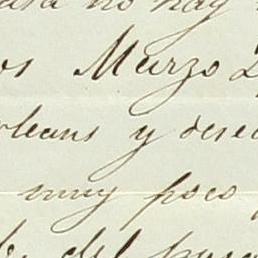 no hay
os Marzo 2
rleans y dese
muy poco
del